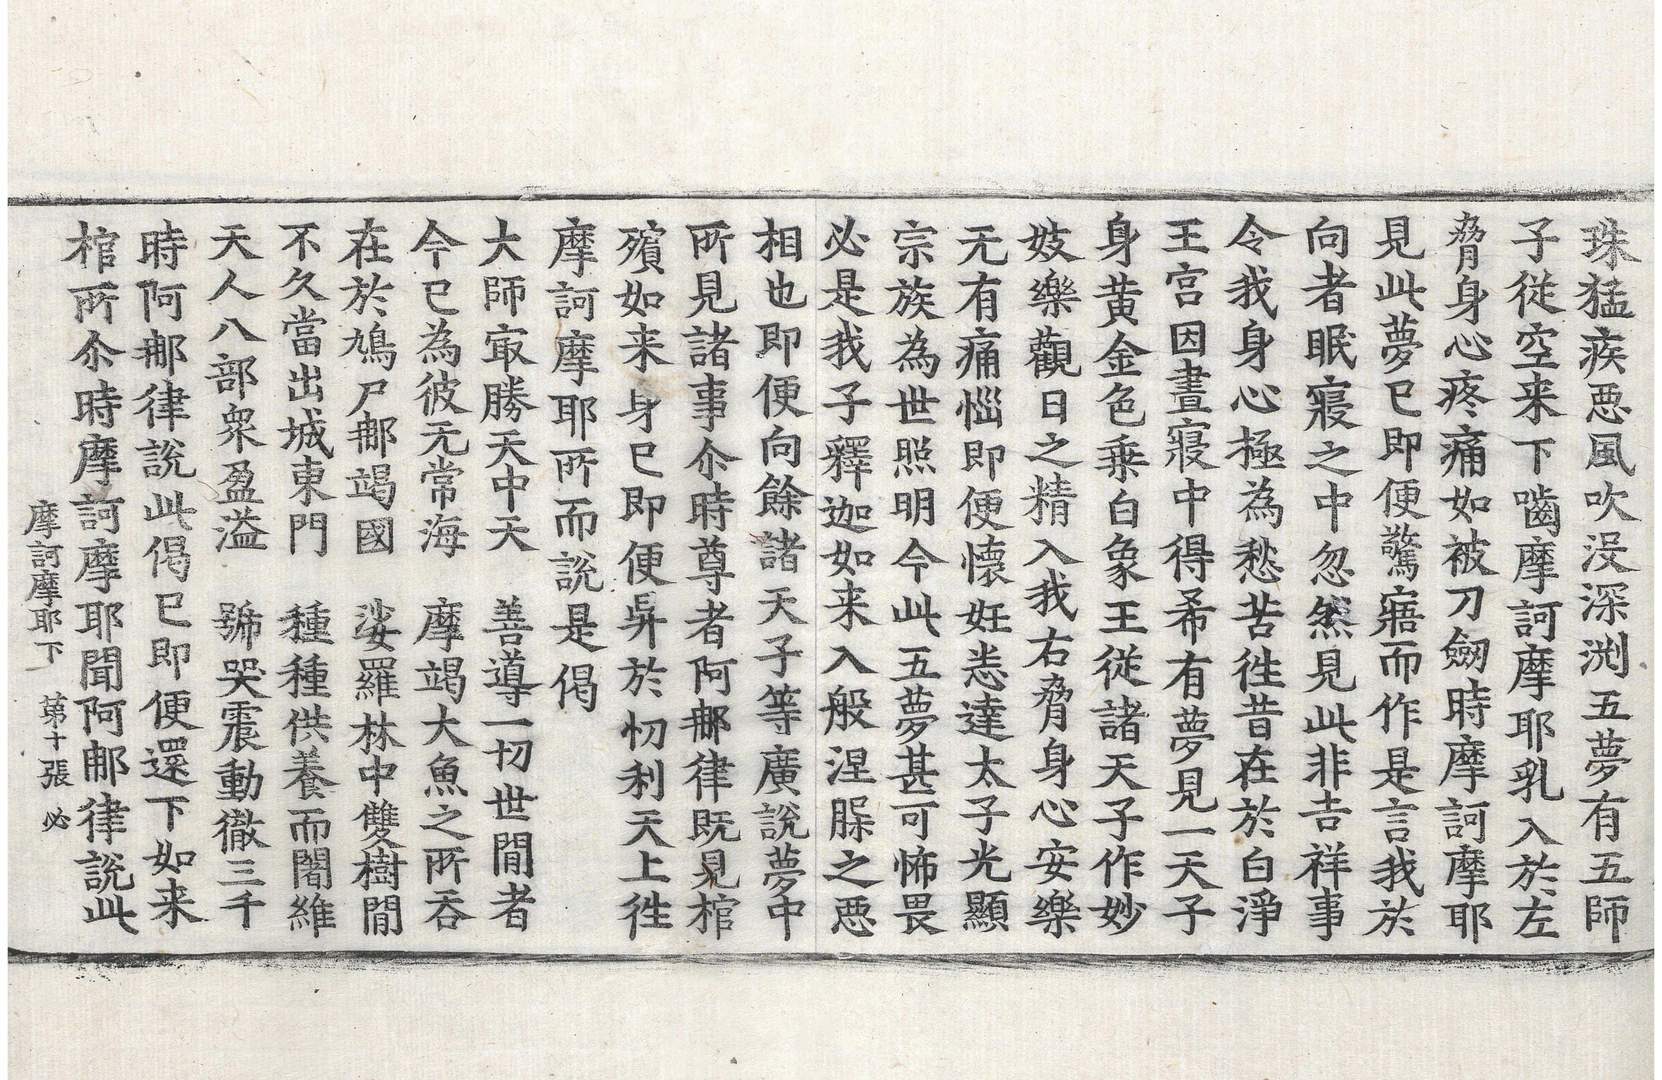 珠猛疾悪風吹没深渕五夢有五師
子從空来下嚙摩訶摩耶乳入於左
脅身心疼痛如被刀劒時摩訶摩耶
見此夢已即便驚寤而作是言我於
向者眠寢之中忽然見此非吉祥事
令我身心極為愁苦徃昔在於白淨
王宫因晝寢中得希有夢見一天子
身黄金色乗白象王從諸天子作妙
妓樂觀日之精入我右脅身心安樂
无有痛惱即便懷妊悉達太子光顯
宗族為世照明今此五夢甚可怖畏
必是我子釋迦如来入般涅槃之悪
相也即便向餘諸天子等廣說夢中
所見諸事尒時尊者阿那律既見棺
殯如来身已即便昇於忉利天上徃
摩訶摩耶所而說是偈
大師㝡勝天中天　善導一切世閒者
今已為彼无常海　摩竭大魚之所吞
在於鳩尸那竭國　娑羅林中雙樹閒
不久當出城東門　種種供養而闍維
天人八部衆盈溢　號哭震動徹三千
時阿那律說此偈已即便還下如来
棺所尒時摩訶摩耶聞阿那律說此
摩訶摩耶下　第十張　必